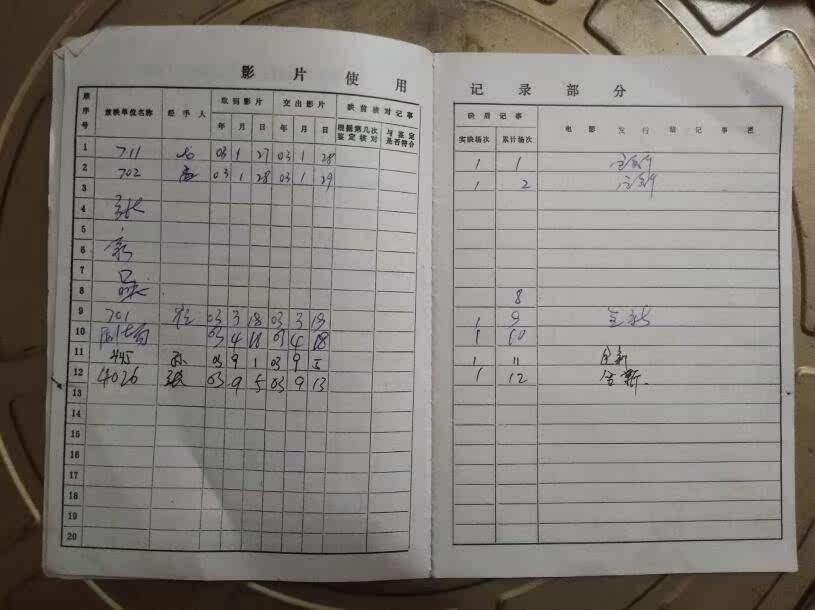 影片使用
顺序号 放映单位名称 经手人 收到影片 交出影片 映前核对记事
年 月 日 年 月 日 根据第几次鉴定核对 与鉴定是否符合
1 711 03 1 27 03 1 28
2 702 03 1 28 03 1 29
3
4 张
5
6 新
7
8
9 701 03 3 18 03 3 19
10 03 4 03 4 18
11 445 孙 03 9 1 03 9 5
12 4026 张 03 9 5 03 9 13
13
14
15
16
17
18
19
20
记录部分
映后记事 电影发行站记事栏
实映场次 累计场次
1 1 全新
1 2 全新
8
1 9 全新
1 10
1 11 全新
1 12 全新